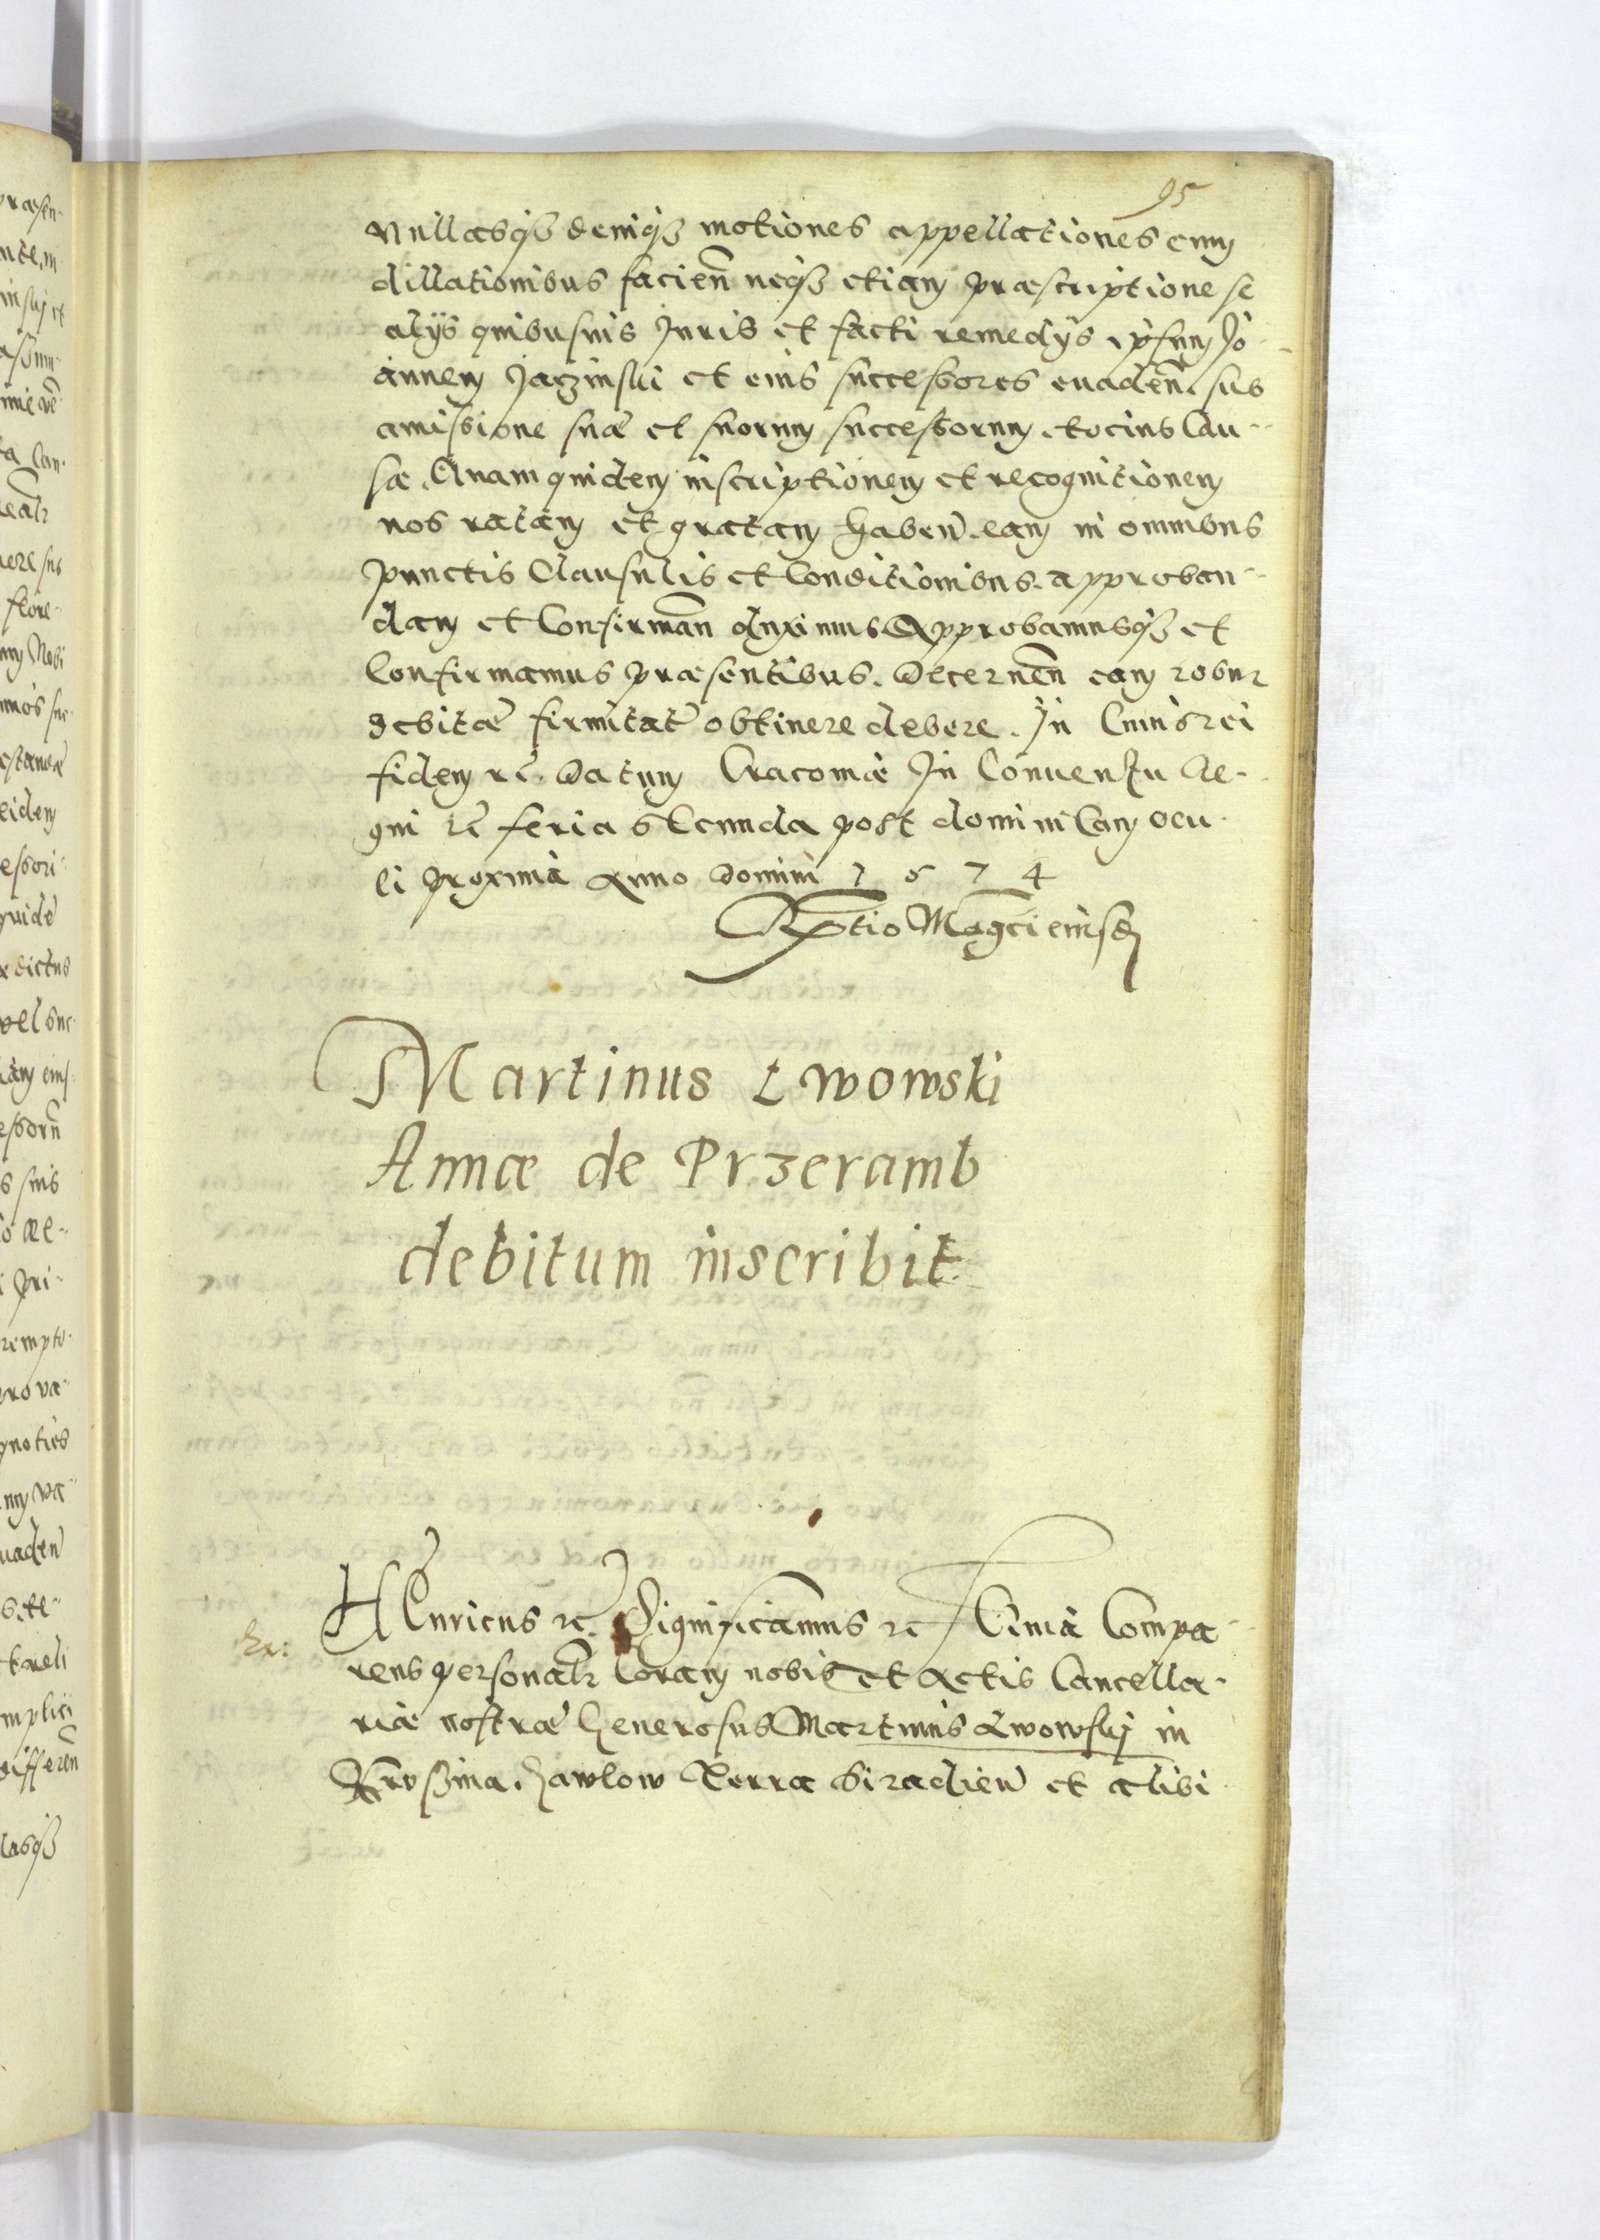 95
Nullasq3 deniq3 motiones appellationes cum
dillationibus facien neq3 etiam præscriptione se
alijs quibusuis Juris et facti remedijs ipsum Jo-
annem et eius successores euaden. sub
amissione suæ et suorum successorum tocius Cau-
sæ. Quam quidem inscriptionem et recognitionem
nos ratam et gratam haben. eam in omnibus
punctis Clausulis et Conditionibus. approban-
dam et Confirman duximus Approbamusq3 et
Confirmamus præsentibus. Decernen eam robur
debitæ firmitat obtinere debere. In Cuius rei
fidem rc. Datum Cracoviæ In Conuentu Re-
gni rc feria secunda post dominicam ocu-
li proxima Anno Domini 1574
Martinus Lwowski
Annæ de Przeramb
debitum inscribit
Henricus rc. Significamus rc Quia Compa-
rens personalr Coram nobis et Actis Cancella-
riæ nostræ Generosus Martinus Lwowskij in
Terra Siradien et alibi